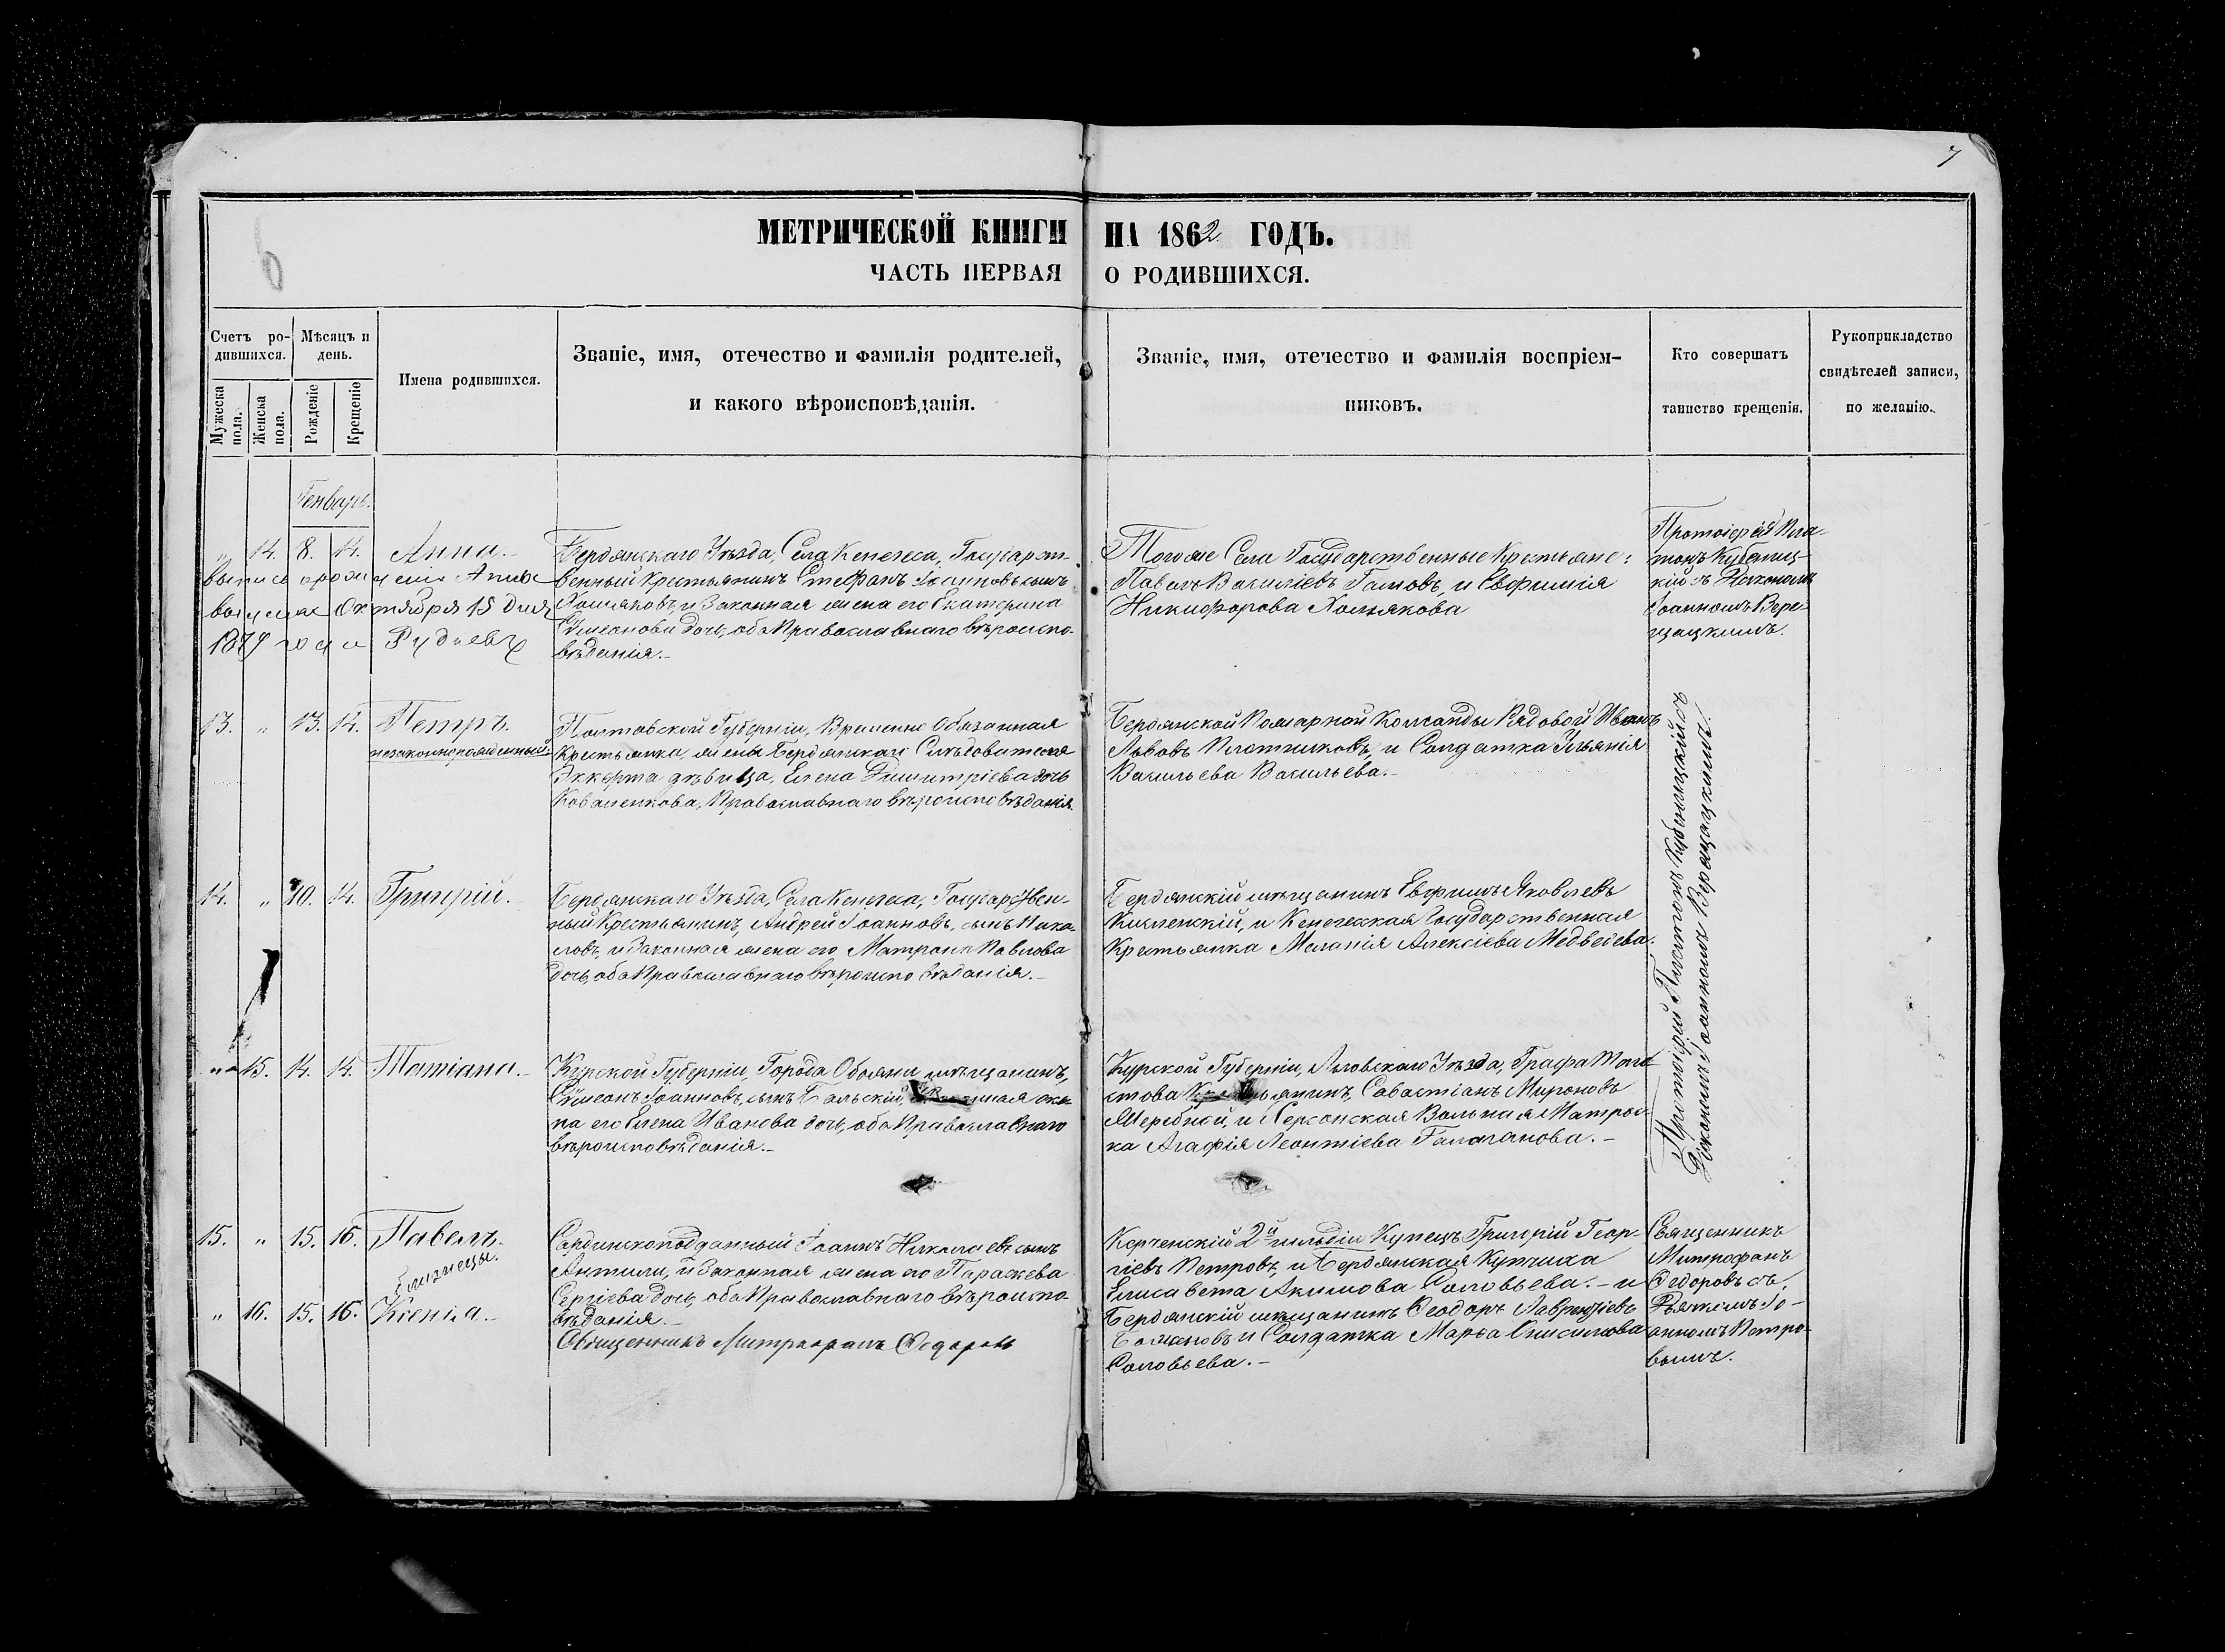 7
6
МЕТРИЧЕСКОЙ КНИГИ НА 1862 ГОДЪ.
ЧАСТЬ ПЕРВАЯ О РОДИВШИХСЯ.
Счетъ ро-
дившихся.
Мѣсяцъ и
день.
Мужеска
пола.
Женска
пола.
Рожденіе
Крещеніе
Имена родившихся.
Званіе, имя, отечество и фамилія родителей,
и какого вѣроисповѣданія.
Званіе, имя, отечество и фамилія воспріем-
никовъ.
Кто совершатъ
таинство крещенія.
Рукоприкладство
свидѣтелей записи,
по желанію.
Генварь.
„ 14. 8. 14. Анна.
выпись о рожденіи Анны
Октября 15 дня
1879 года Рудневъ
Бердянскаго Уѣзда, Села Кенегеса, Государст-
венный Крестьянинъ Стефанъ Іоанновъ сынъ
Хомяковъ, и Законная жена его Екатерина
Сѵмеонова дочь, оба Православнаго вѣроиспо-
вѣданія.-
Того же Села Государственные Крестьяне:
Павелъ Василіевъ Гамовъ, и Евфимія
Никифорова Хомякова
Протоіерей Пла-
тонъ Кубениц-
кій съ Діакономъ
Іоанномъ Вере-
щацкимъ.
13. „ 13. 14. Петръ
незаконнорожденный
Полтавской Губерніи, Временно Обязанная
Крестьянка, жены Бердянскаго Слѣдователя
Эккерта дѣвица, Елена Димитріева дочь
Коваленкова, Православнаго вѣроисповѣданія.
Бердянской Пожарной Команды Рядовой Иванъ
Львовъ Плотниковъ, и Солдатка Ульянія
Васильева Васильева.-
Протоіерей Платонъ Кубеницкій съ
Діакономъ Іоанномъ Верещацкимъ.
14. „ 10. 14. Григорій.
Бердянскаго Уѣзда, Села Кенегеса, Государствен-
ный Крестьянинъ, Андрей Іоанновъ, сынъ
и Законная жена его Матрона Павлова
дочь, оба Православнаго вѣроисповѣданія.-
Бердянскій мѣщанинъ Евфимъ Яковлевъ
и Кенегеская Государственная
Крестьянка Меланія Алексіева Медведева.
„ 15. 14. 14. Татіана.-
Курской Губерніи, Города Обояни мѣщанинъ,
Сѵмеонъ Іоанновъ, сынъ Бальскій, же-
на его Елена Иванова дочь, оба Православнаго
вѣроисповѣданія.-
Курской Губерніи, Льговскаго Уѣзда, Графа Толс-
това Крестьянинъ, Савастіанъ Мироновъ
и Херсонская Вольная Матрос-
ка Агафія Леонтіева Галаганова.-
15. „ 15. 16. Павелъ.
близнецы.
„ 16. 15. 16. Ксенія.-
Сардинскоподданный Іоаннъ Николаевъ сынъ
и Законная жена его Параскева
Сергіева дочь, оба Православнаго вѣроиспо-
вѣданія.-
Священникъ Митрофанъ Федоровъ
Керченскій 2й гильдіи Купецъ Григорій Геор-
гіевъ Петровъ, и Бердянская Купчиха
Елисавета Акимова Соловьева.- и
Бердянскій мѣщанинъ Феодоръ Лаврентіевъ
и Солдатка Марѳа Онисимова
Соловьева.-
Священникъ
Митрофанъ
Федоровъ съ
Дьякомъ Іо-
анномъ Петро-
вымъ.